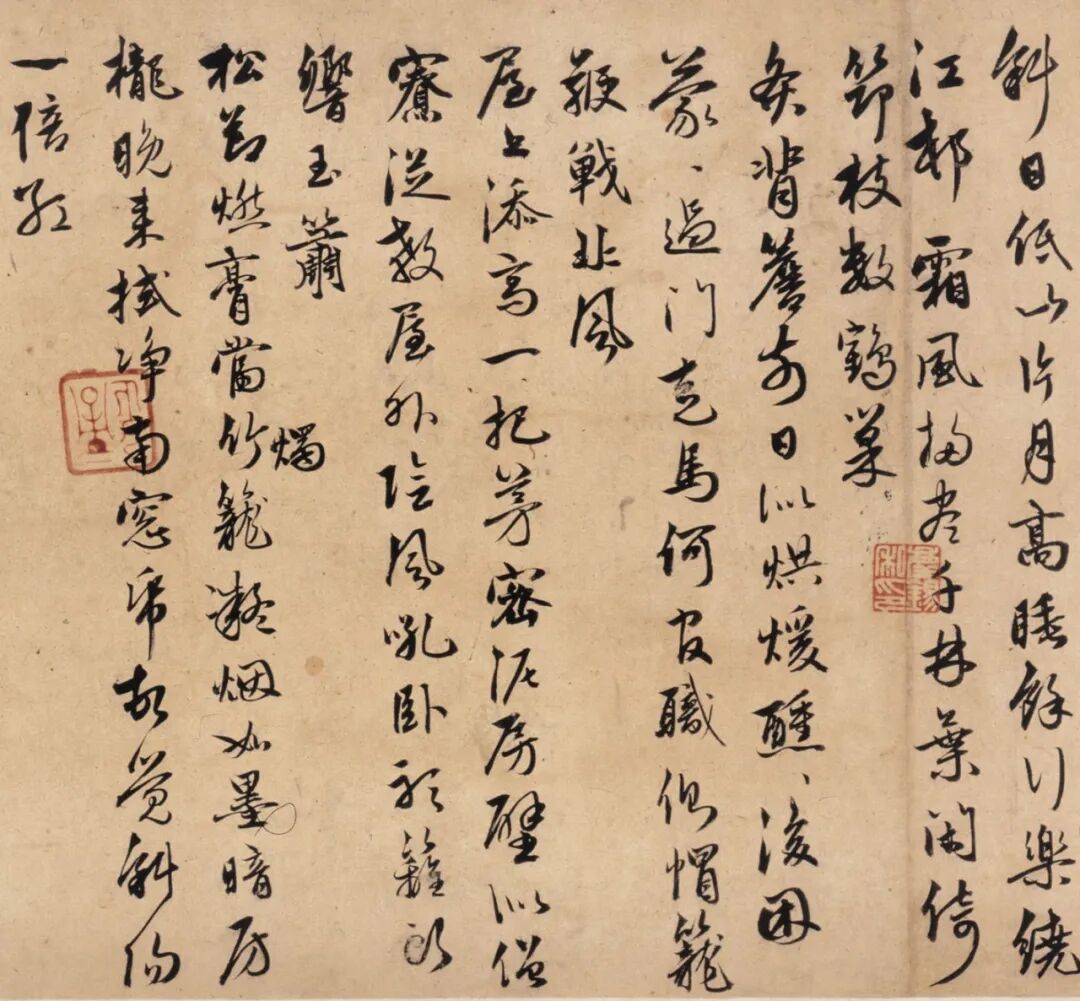 斜日低山片月高睡餘行樂繞
江郊霜風掃盡千林葉閑倚
笻枝數鶴巢
炙背簷前日似烘煖醺、後困
蒙、過門走馬何官職側帽籠
鞭戰北風
屋上添高一把茅密泥房壁似僧
寮從教屋外陰風吼卧聽籬頭
響玉簫
燭
松節燃膏當竹籠凝烟如墨暗房
櫳晚來拭净南窓帋便覺斜陽
一倍紅